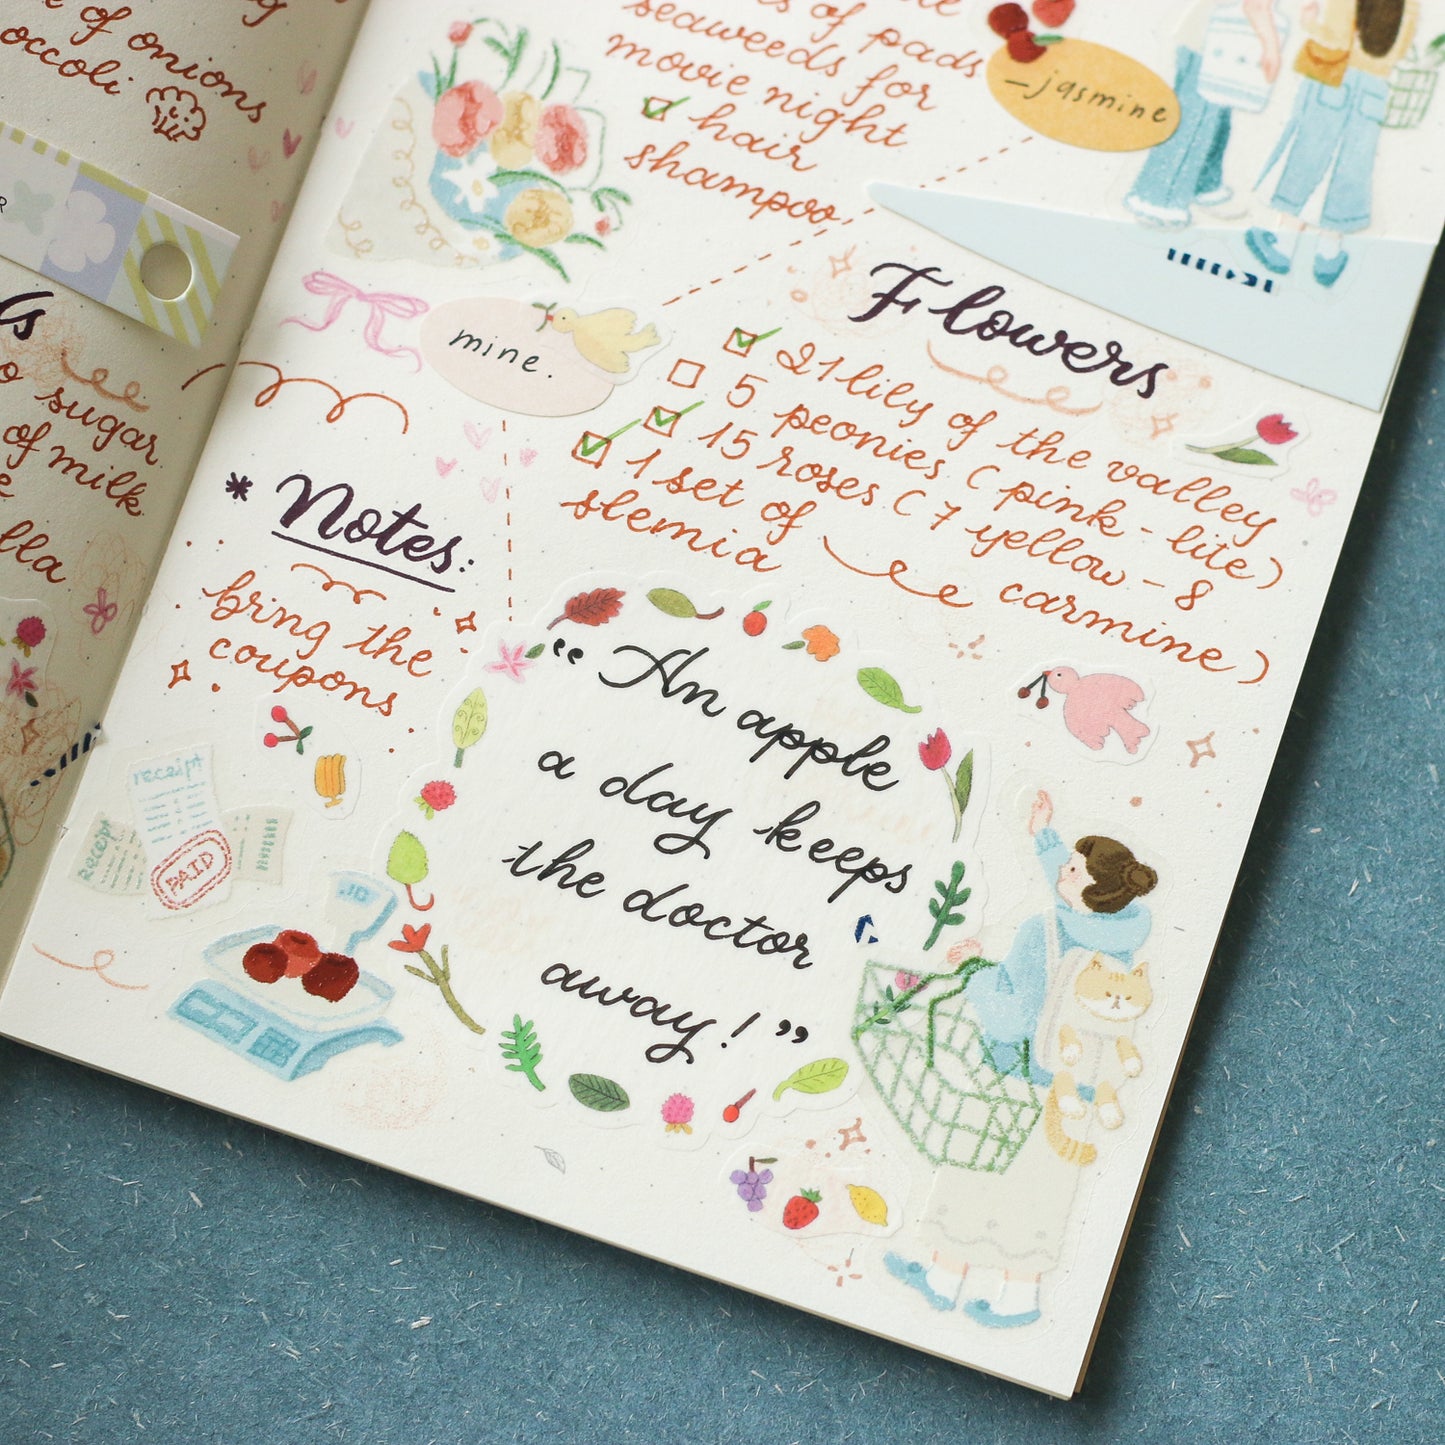 of onions
seaweeds for
of pads
movie night
hair
shampoo
jasmine
mine.
Flowers
21 lily of the valley
5 peonies (pink - lite)
15 roses (7 yellow - 8
carmine)
1 set of
slemia
sugar
of milk
* Notes:
bring the
coupons
receipt
receipt
PAID
“An apple
a day keeps
the doctor
away!”